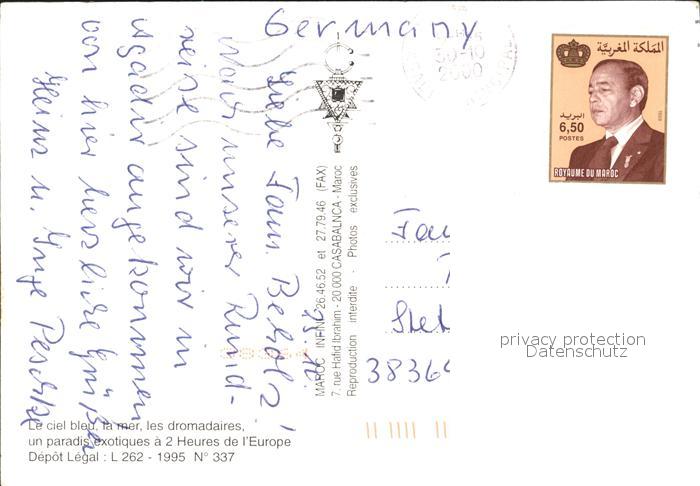 Germany
30-10
2000
المملكة المغربية
البريد
6,50
POSTES
1999
ROYAUME DU MAROC
Liebe Fam. Beholz!
Nach unserer Rund-
reise sind wir in
Agadir angekommen
von hier herzliche Grüße
Heinz u. Inge
MAROC INFINI 26.46.52 et 27.79.46 (FAX)
7, rue Hafid Ibrahim - 20 000 CASABALNCA - Maroc
Reproduction interdite - Photos exclusives
Fa
Stet
3836
privacy protection
Datenschutz
Le ciel bleu, la mer, les dromadaires,
un paradis exotiques à 2 Heures de l'Europe
Dépôt Légal : L 262 - 1995 N° 337